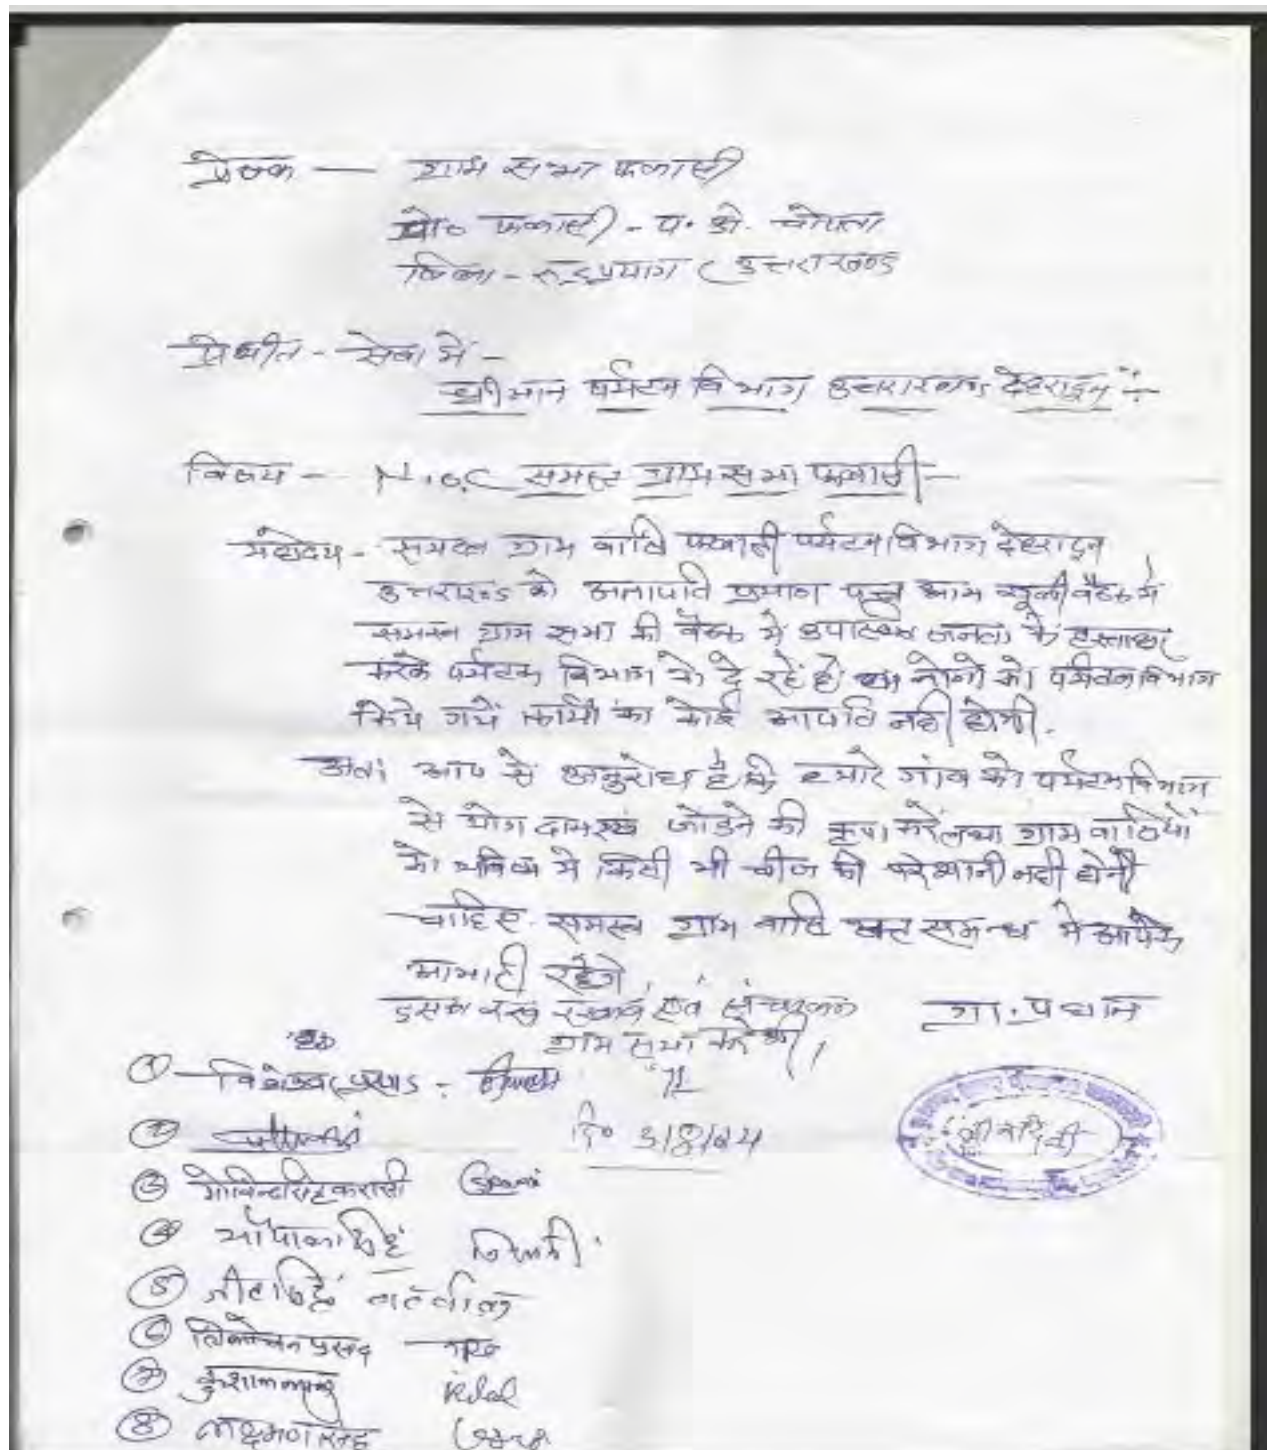 प्रेषक — ग्राम सभा फलासी
पो० फलासी - प. ओ. चोपता
जिला - रुद्रप्रयाग ( उत्तराखण्ड
प्रेषीत - सेवा में -
श्रीमान पर्यटन विभाग उत्तराखण्ड देहरादून
विषय - N.O.C समस्त ग्राम सभा फलासी -
महोदय - समस्त ग्राम वासि फलासी पर्यटन विभाग देहरादून
उत्तराखण्ड को अनापति प्रमाण पत्र आम खुली बैठक मे
समस्त ग्राम सभा की बैठक में उपास्थित जनता के हस्ताक्षर
करके पर्यटन विभाग को दे रहें है, हम लोगो को पर्यटन विभाग
किये गये कार्यो का कोई आपति नही होगी.
अतः आप से अनुरोध है कि हमारे गांव को पर्यटन विभाग
से जोडने की कृपा करें तथा ग्राम वासियों
को भविष्य मे किसी भी चीज की परेशानी नही होनी
चाहिए. समस्त ग्राम वासि समन्ध मे आपके
आभारी रहेंगे,
इसका रखाव एवं संचालन ग्रा. प्रधान
ग्राम सभा करेगी,
① विशेश्वर प्रसाद -
② दि० 3/8/24
③ गोविन्द सिंह करासी
④ गोपाल सिंह
⑤ जीत सिंह
⑥ त्रिलोचन प्रसाद
⑦ कुशाल
⑧ लक्ष्मण सिंह